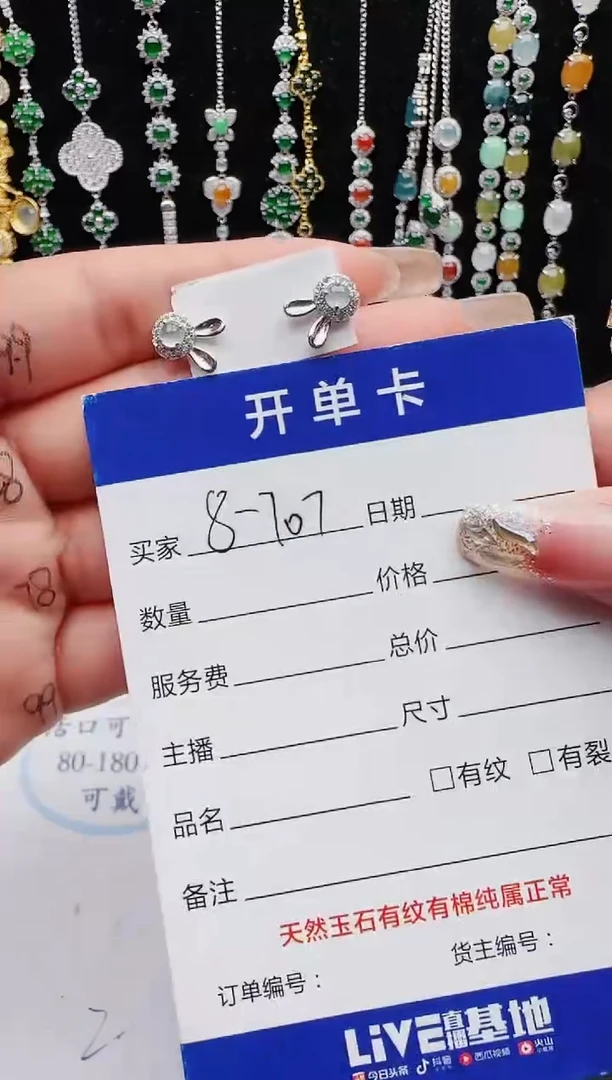 开单卡
买家 8-707 日期
数量 价格
服务费 总价
主播 尺寸
品名 □有纹 □有裂
备注
天然玉石有纹有棉纯属正常
订单编号： 货主编号：
LiVE直播基地
今日头条 抖音 西瓜视频 火山
活口可
80-180
可戴
99
8
-8
99
2.